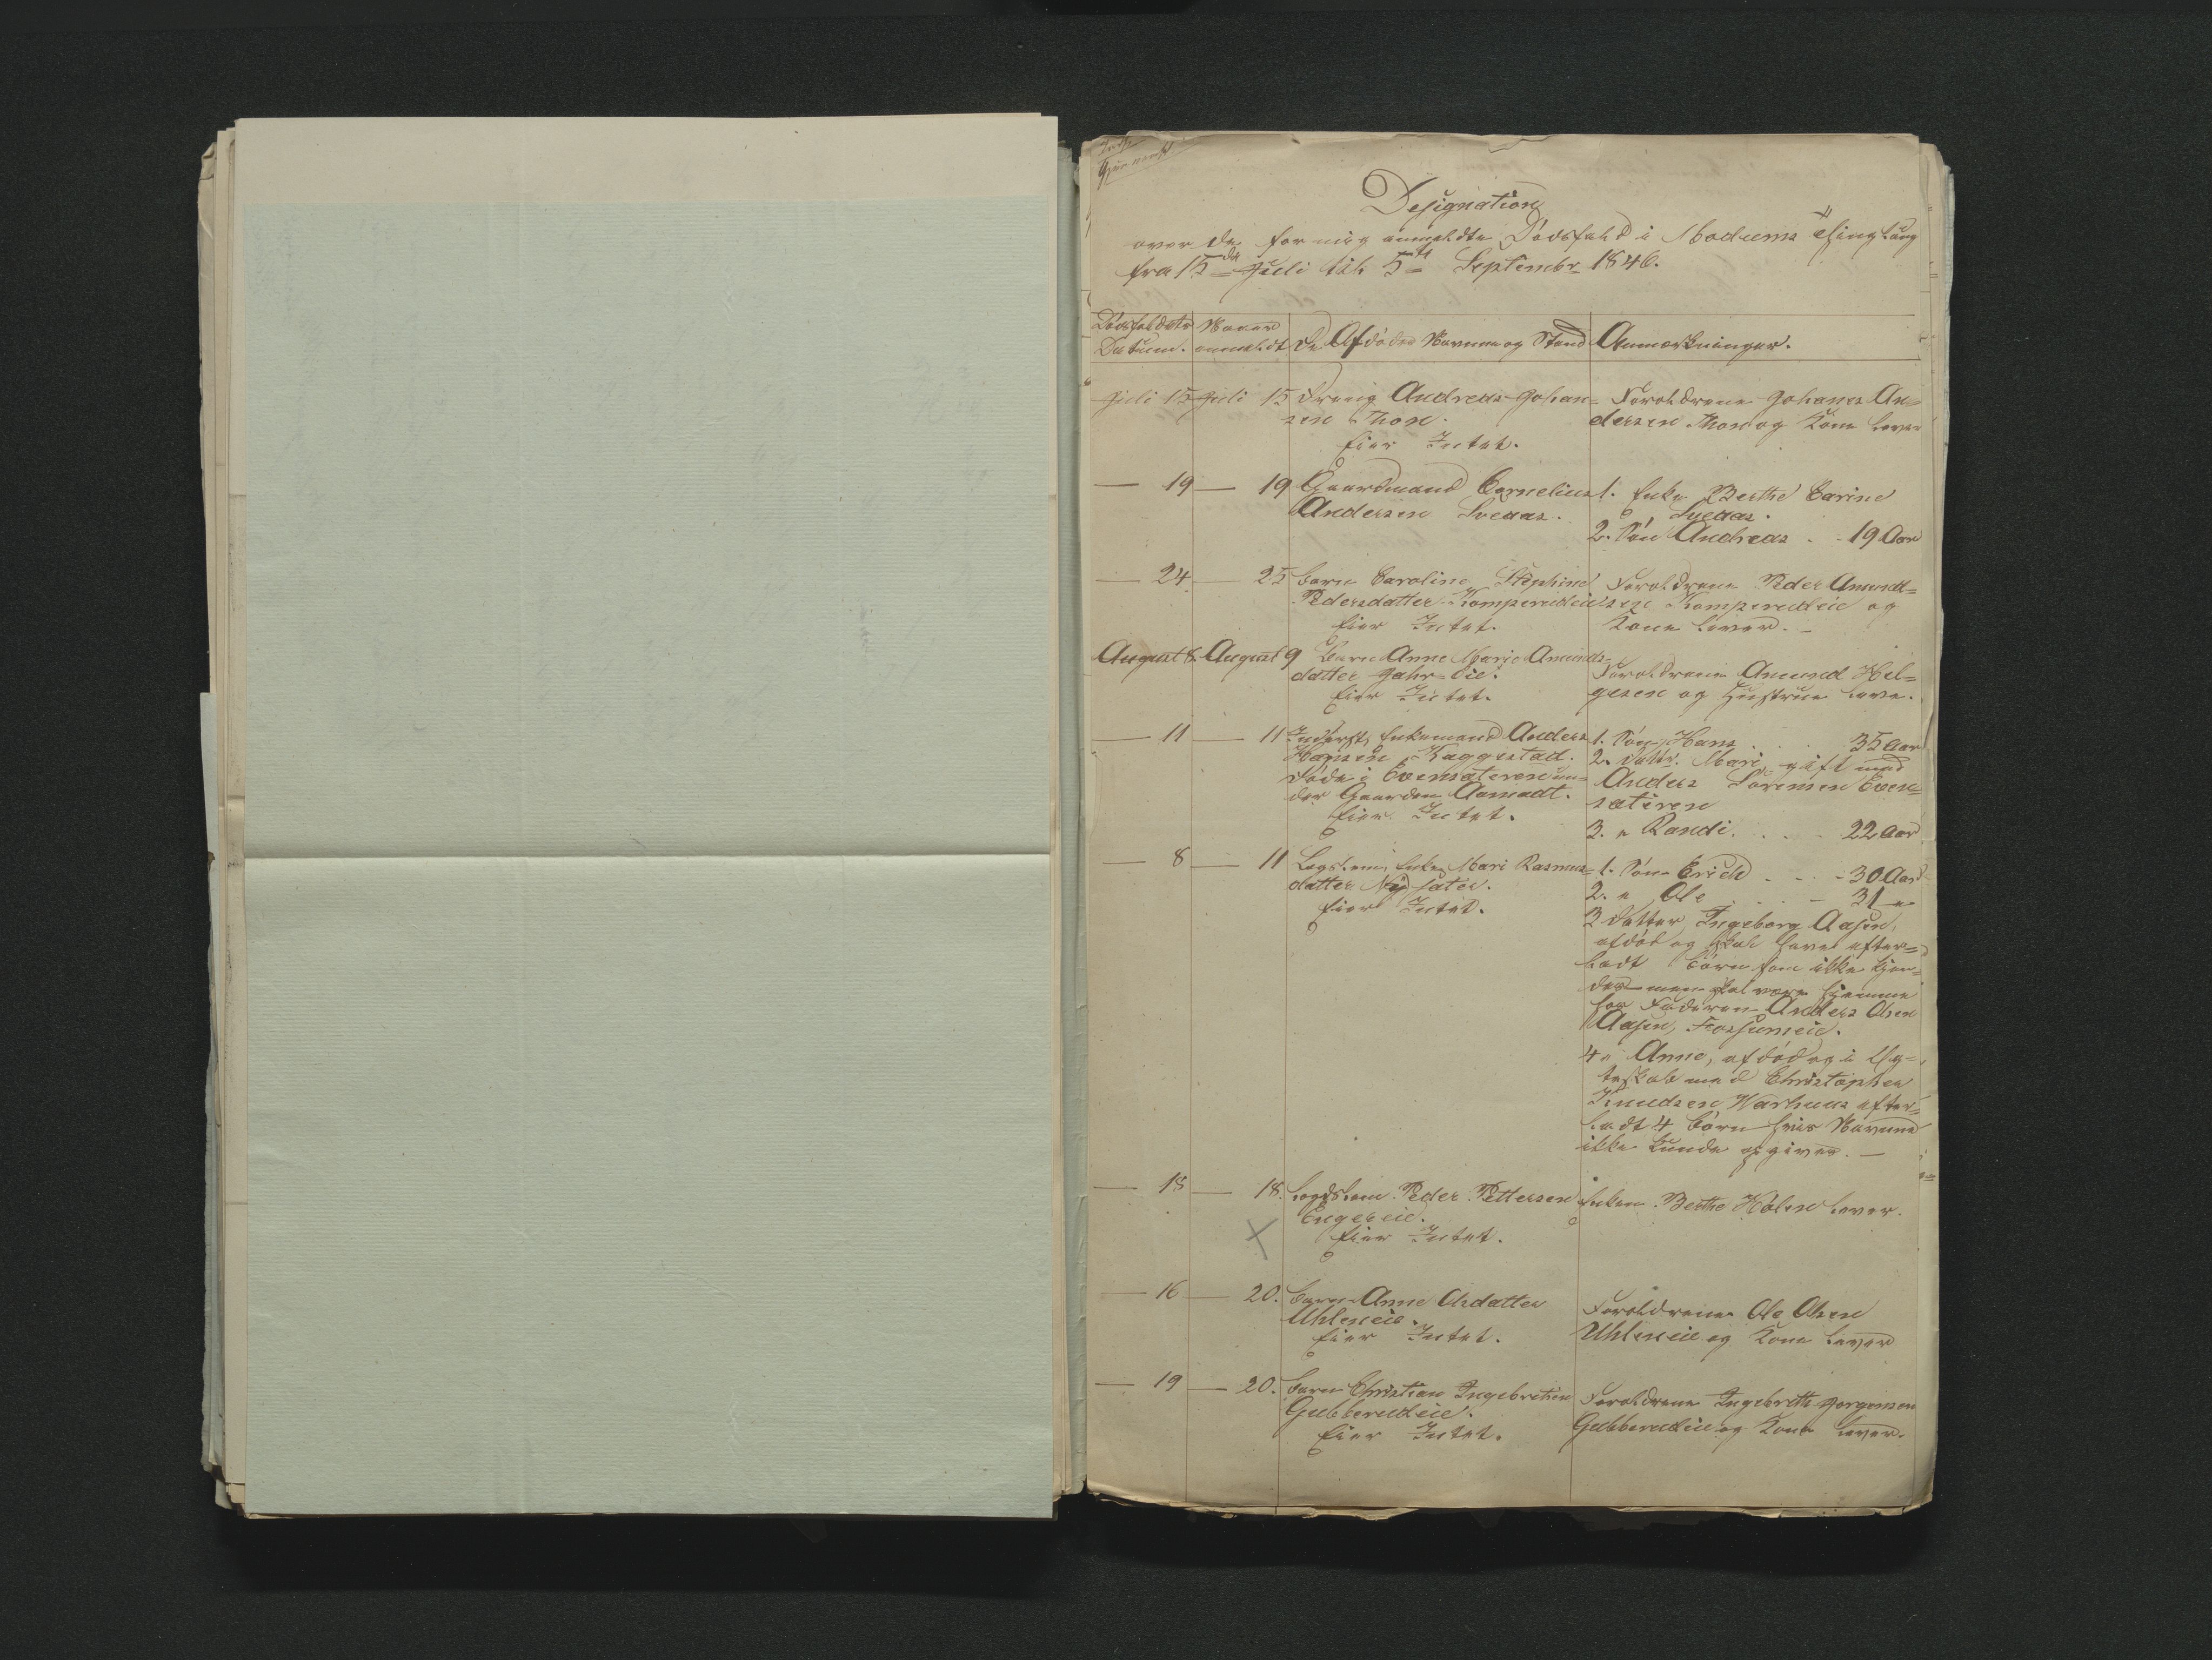 Designation
over de for mig anmeldte Dødsfald i Modums Thinglaug
fra 15de Juli til 5te Septembr 1846.
Dødsfaldets Datum.
Naar anmeldt
De Afdødes Navne og Stand
Anmærkninger.
Juli 15 Juli 15 Dreng Andreas Johan=
sen Thon.
Eier Intet.
Forældrene Johanes An=
dersen Thon og Kone lever
— 19 — 19 Gaardmand Cornelius
Andersen Sveaas.
1. Enke Berthe Carine
Sveaas.
2. Søn Andreas . . 19 Aar
— 24 — 25 Barn Caroline Stephine
Pedersdatter Komperudeie
Eier Intet.
Forældrene Peder Amundt=
sen Komperudeie og
Kone lever. —
August 8. August 9 Barn Anne Marie Amunds=
datter Jahr-Eie.
Eier Intet.
Forældrene Amund Hel=
gesen og Hustrue leve.
— 11 — 11 Inderst, Enkemand Anders
Hansen Kaggestad.
Døde i Evensæteren un=
der Gaarden Aamodt.
Eier Intet.
1. Søn, Hans . . . 35 Aar
2. Dattr. Mari, gift med
Anders Sørensen Even=
sæteren
3. " Randi. . . . 22 Aar
— 8 — 11 Lægslem, Enke Mari Rasmus=
datter Nysæter.
Eier Intet.
1. Søn Erich . . . 30 Aar
2. " Ole . . . 31 "
3 Datter, Ingeborg Aasen,
afdød og skal have efter=
ladt Børn som ikke kjen=
des men skal være hjemme
hos Faderen Anders Olsen
Aasen, Fossumeie.
4 " Anne, afdød og i Æg=
teskab med Christopher
Knudsen Warhuus efter=
ladt 4 Børn hvis Navne
ikke kunde opgives. —
— 18 — 18. Lægdslem Peder Pettersen
Engereie.
Eier Intet.
Enken Berthe Holen lever.
— 16 — 20. Barn Anne Olsdatter
Uhleneie.
Eier Intet.
Forældrene Ole Olsen
Uhleneie og Kone lever
— 19 — 20. Barn Christian Ingebretsen
Gubberudeie.
Eier Intet.
Forældrene Ingebrette Jørgensen
Gubberudeie og Kone lever.